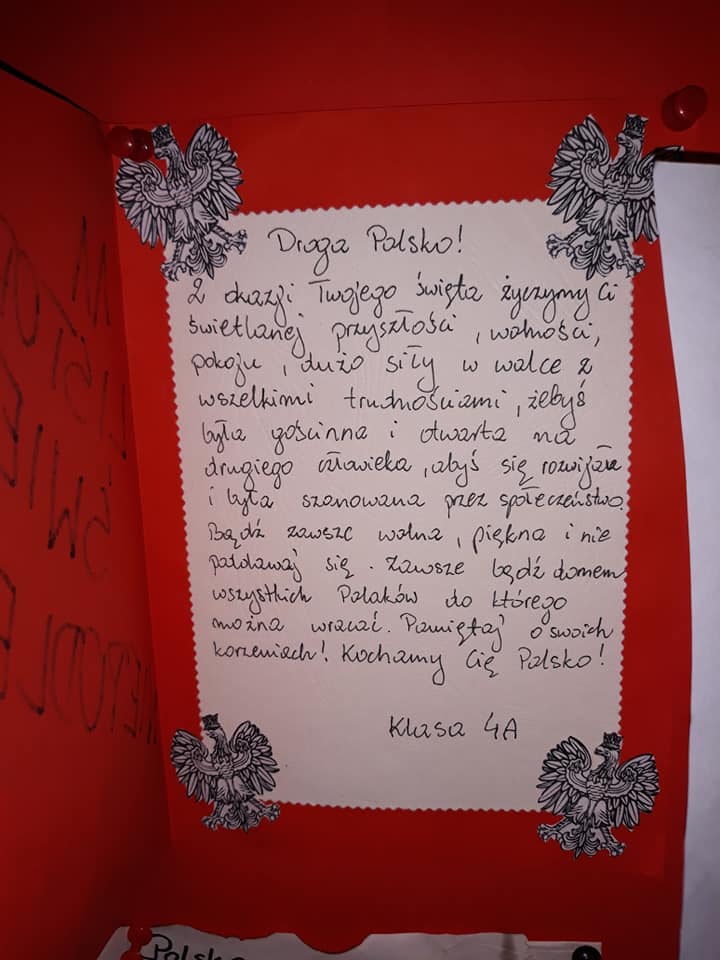 Droga Polsko!
Z okazji Twojego święta życzymy Ci
świetlanej przyszłości, wolności,
pokoju, dużo siły w walce z
wszelkimi trudnościami, żebyś
była gościnna i otwarta na
drugiego człowieka, abyś się rozwijała
i była szanowana przez społeczeństwo.
Bądź zawsze wolna, piękna i nie
poddawaj się. Zawsze bądź domem
wszystkich Polaków do którego
można wracać. Pamiętaj o swoich
korzeniach! Kochamy Cię Polsko!
Klasa 4A
Polsk